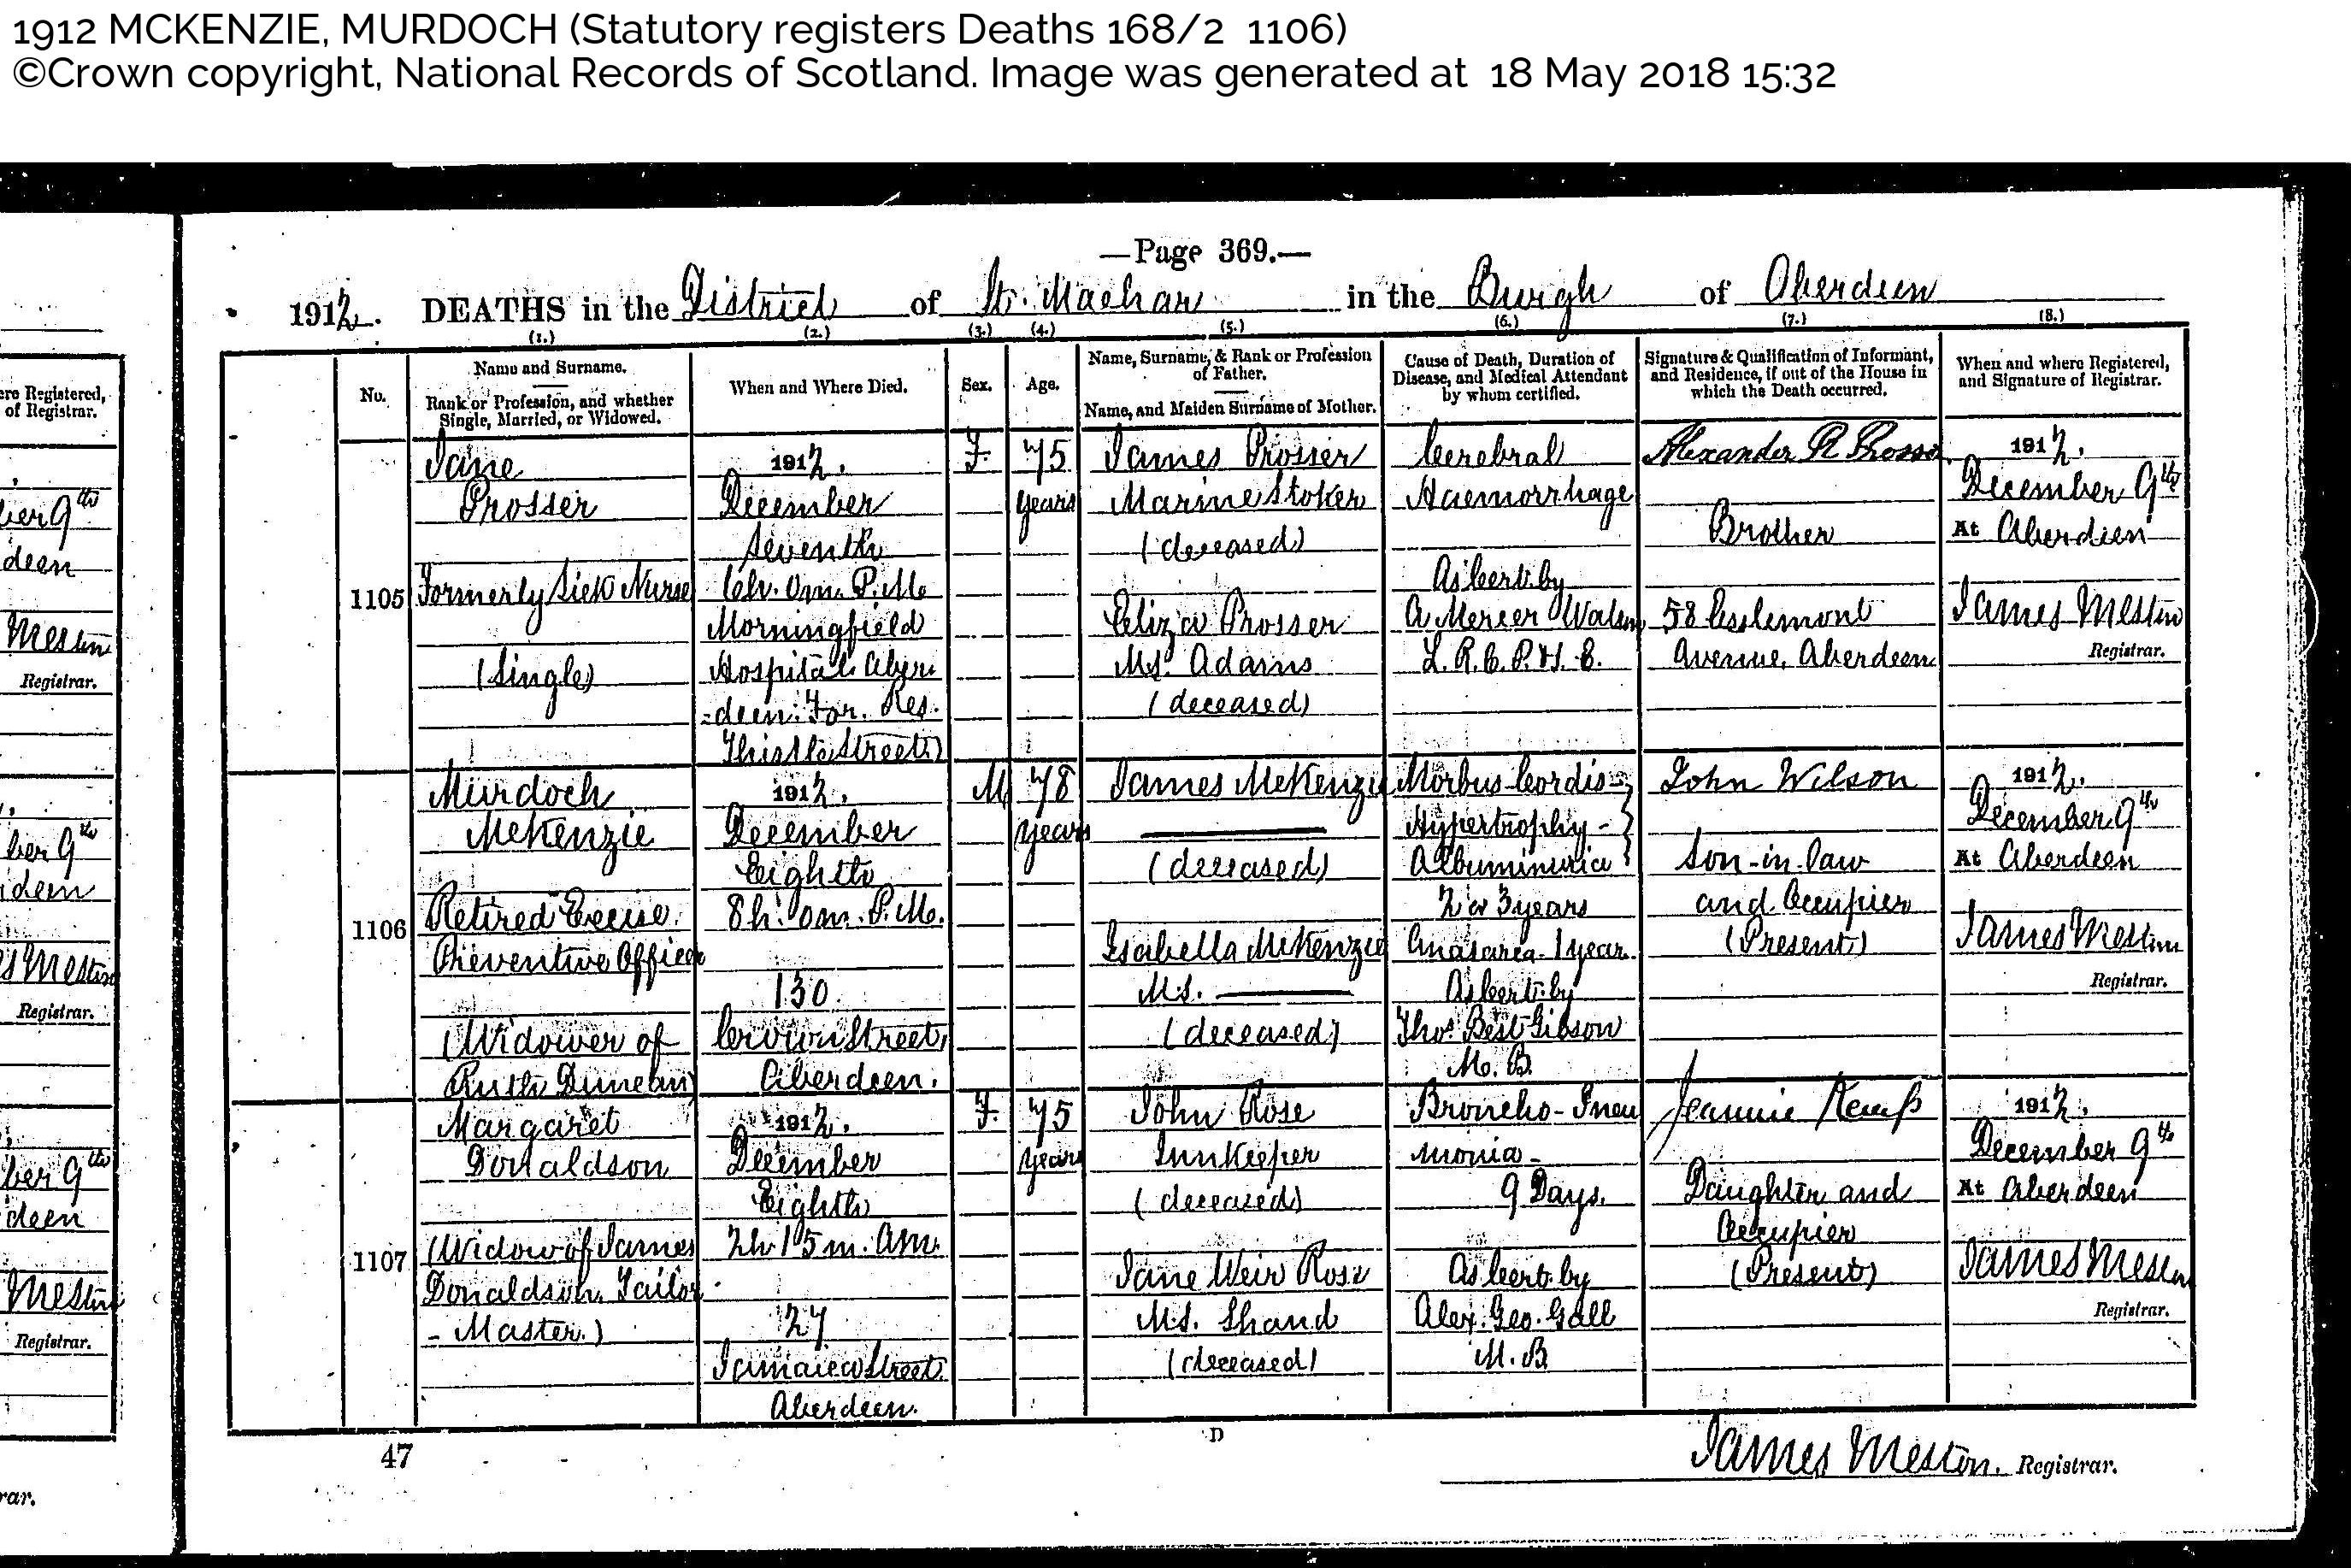 1912 MCKENZIE, MURDOCH (Statutory registers Deaths 168/2 1106)
©Crown copyright, National Records of Scotland. Image was generated at 18 May 2018 15:32
—Page 369.—
1912. DEATHS in the District of St. Machar in the Burgh of Aberdeen
(1.) (2.) (3.) (4.) (5.) (6.) (7.) (8.)
No.
Name and Surname.
Rank or Profession, and whether
Single, Married, or Widowed.
When and Where Died.
Sex.
Age.
Name, Surname, & Rank or Profession
of Father.
Name, and Maiden Surname of Mother.
Cause of Death, Duration of
Disease, and Medical Attendant
by whom certified.
Signature & Qualification of Informant,
and Residence, if out of the House in
which the Death occurred.
When and where Registered,
and Signature of Registrar.
1105
Jane
Prosser
Formerly Sick Nurse
(Single)
1912.
December
Seventh
6h. 0m. P.M.
Morningfield
Hospital. Aber
-deen. For. Res.
Thistle Street)
F.
75
years
James Prosser
Marine Stoker
(deceased)
Eliza Prosser
M.S. Adams
(deceased)
Cerebral
Haemorrhage
As Cert. by
A Mercer
L.R.C.P. & S. E.
Alexander R Prosser
Brother
58 Esslemont
Avenue, Aberdeen
1912.
December 9th
At Aberdeen
James Meston
Registrar.
1106
Murdoch
McKenzie
Retired Excise
Preventive Officer
(Widower of
Ruth Duncan)
1912.
December
Eighth
8h. 0m. P.M.
130
Crown Street,
Aberdeen.
M
78
years
James McKenzie
(deceased)
Isabella McKenzie
M.S.
(deceased)
Morbus Cordis -
Hypertrophy -
Albuminuria
2 or 3 years
Anasarca - 1 year.
As Cert. by
Thos. Best Gibson
M. B.
John Wilson
Son-in-law
and Occupier
(Present)
1912.
December 9th
At Aberdeen
James Meston
Registrar.
1107
Margaret
Donaldson
(Widow of James
Donaldson, Tailor
- Master.)
1912.
December
Eighth
2h 15m. AM.
27
Jamaica Street
Aberdeen.
F.
75
years
John Rose
Innkeeper
(deceased)
Jane Weir Rose
M.S. Shand
(deceased)
Broncho-Pneu
monia -
9 Days.
As Cert. by
Alex. Geo. Gall
M. B
Jeannie Kemp
Daughter and
Occupier
(Present)
1912.
December 9th
At Aberdeen
James Meston
Registrar.
47
D
James Meston. Registrar.